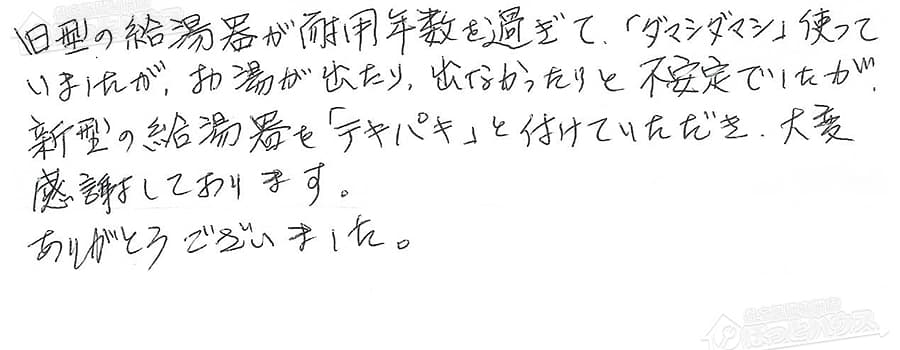 旧型の給湯器が耐用年数を過ぎて、「ダマシダマシ」使って
いましたが、お湯が出たり、出なかったりと不安定でしたが、
新型の給湯器を「テキパキ」と付けていただき、大変
感謝しております。
ありがとうございました。
ほっとハウス